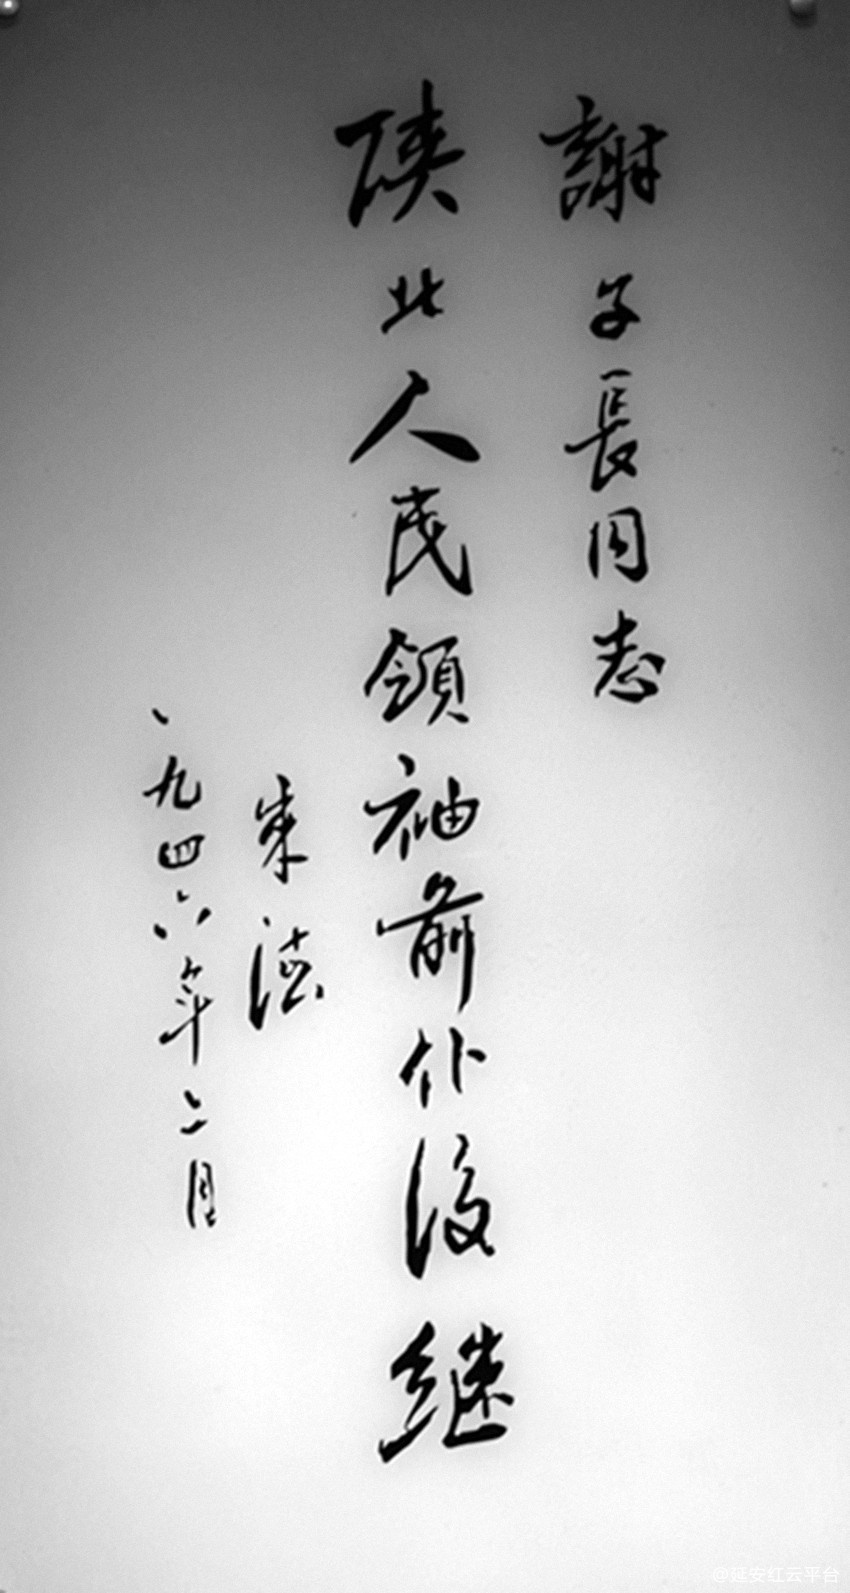 謝子長同志
陝北人民領袖前仆後继
朱德
一九四六年二月
@延安红云平台